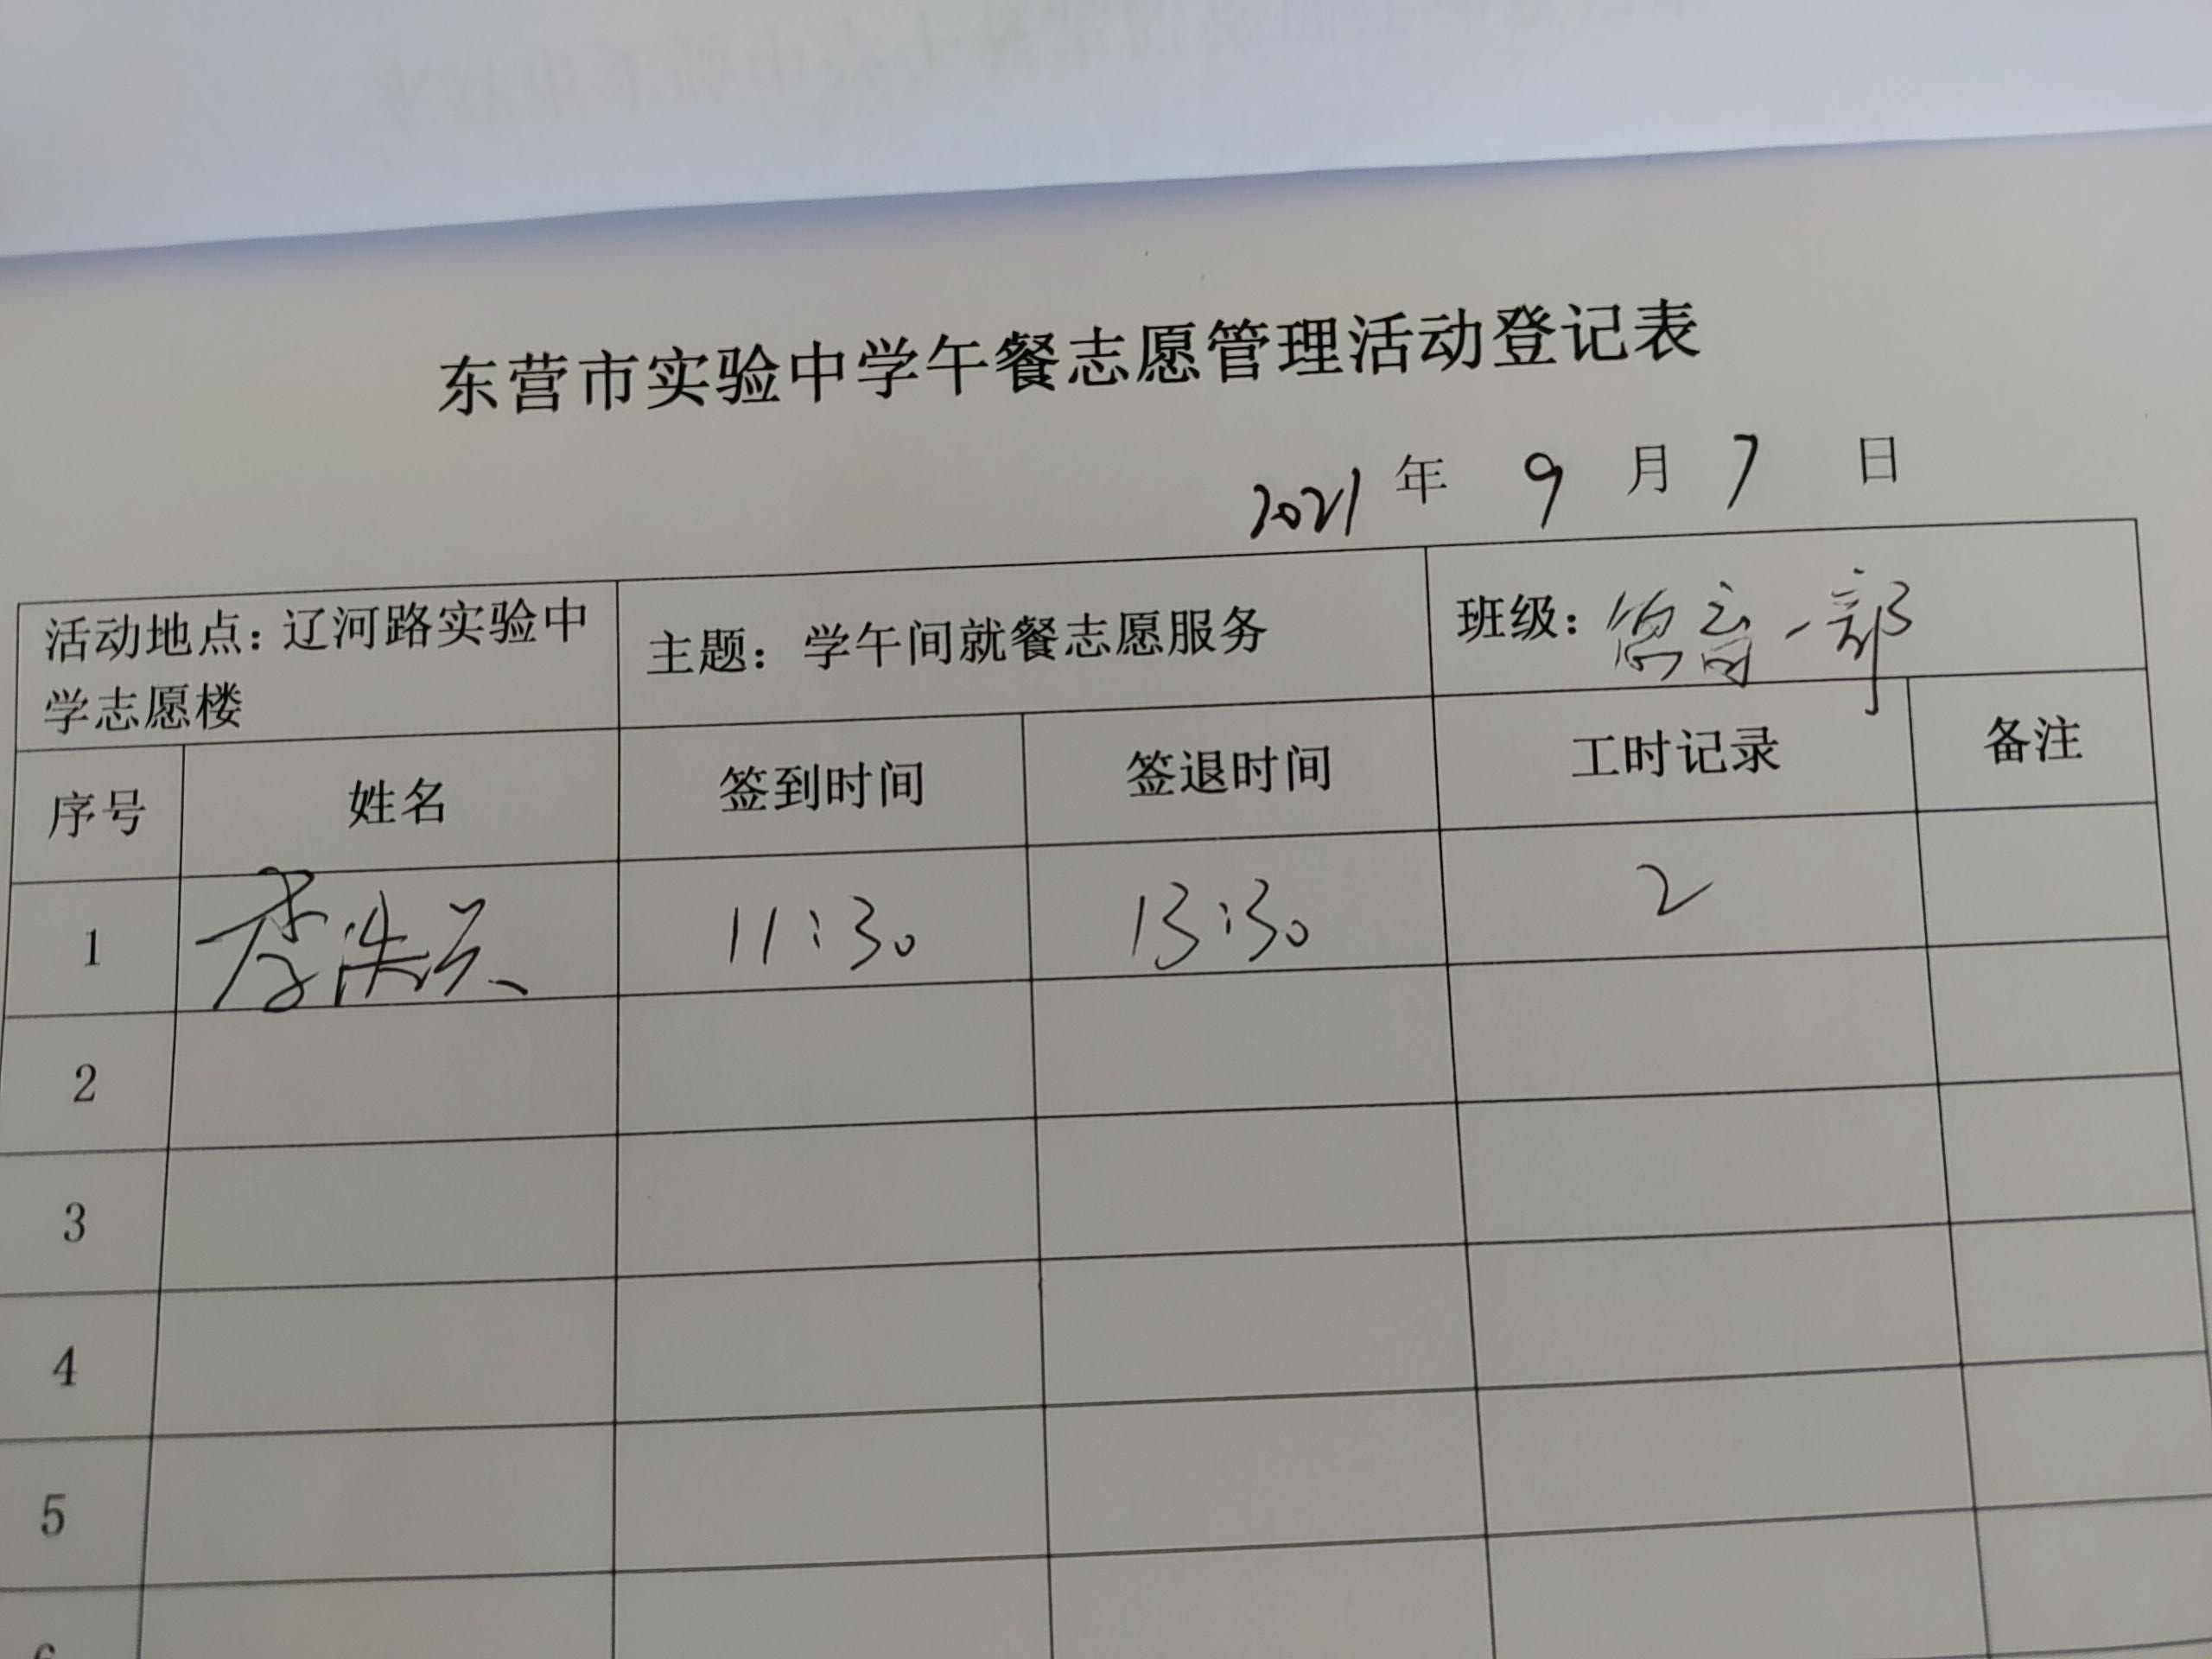 东营市实验中学午餐志愿管理活动登记表
2021 年 9 月 7 日
活动地点：辽河路实验中
学志愿楼
主题：学午间就餐志愿服务
班级：德育一部
序号 姓名 签到时间 签退时间 工时记录 备注
1 李洪 11:30 13:30 2
2
3
4
5
6